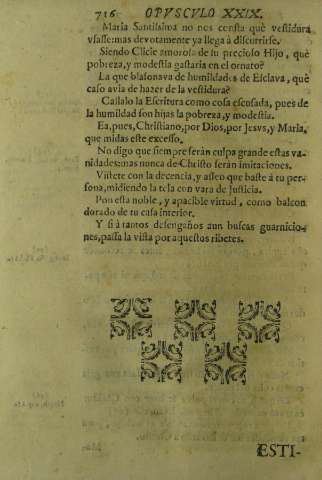 716 OPVSCVLO XXIX.
Maria Santissima no nos consta què vestidura
vsasse: mas devotamente ya llega à discurrirse.
Siendo Clicie amorosa de su precioso Hijo, què
pobreza, y modestia gastaria en el ornato?
La que blasonava de humildades de Esclava, què
caso avia de hazer de la vestidura?
Callalo la Escritura como cosa escusada, pues de
la humildad son hijas la pobreza, y modestia.
Ea, pues, Christiano, por Dios, por Jesvs, y Maria,
que midas este excesso.
No digo que siempre serán culpa grande estas va-
nidades: mas nunca de Christo serán imitaciones.
Vistete con la decencia, y asseo que baste à tu per-
sona, midiendo la tela con vara de Justicia.
Pon esta noble, y apacible virtud, como balcon
dorado de tu casa interior.
Y si à tantos desengaños aun buscas guarnicio-
nes, passa la vista por aquestos ribetes.
ESTI-